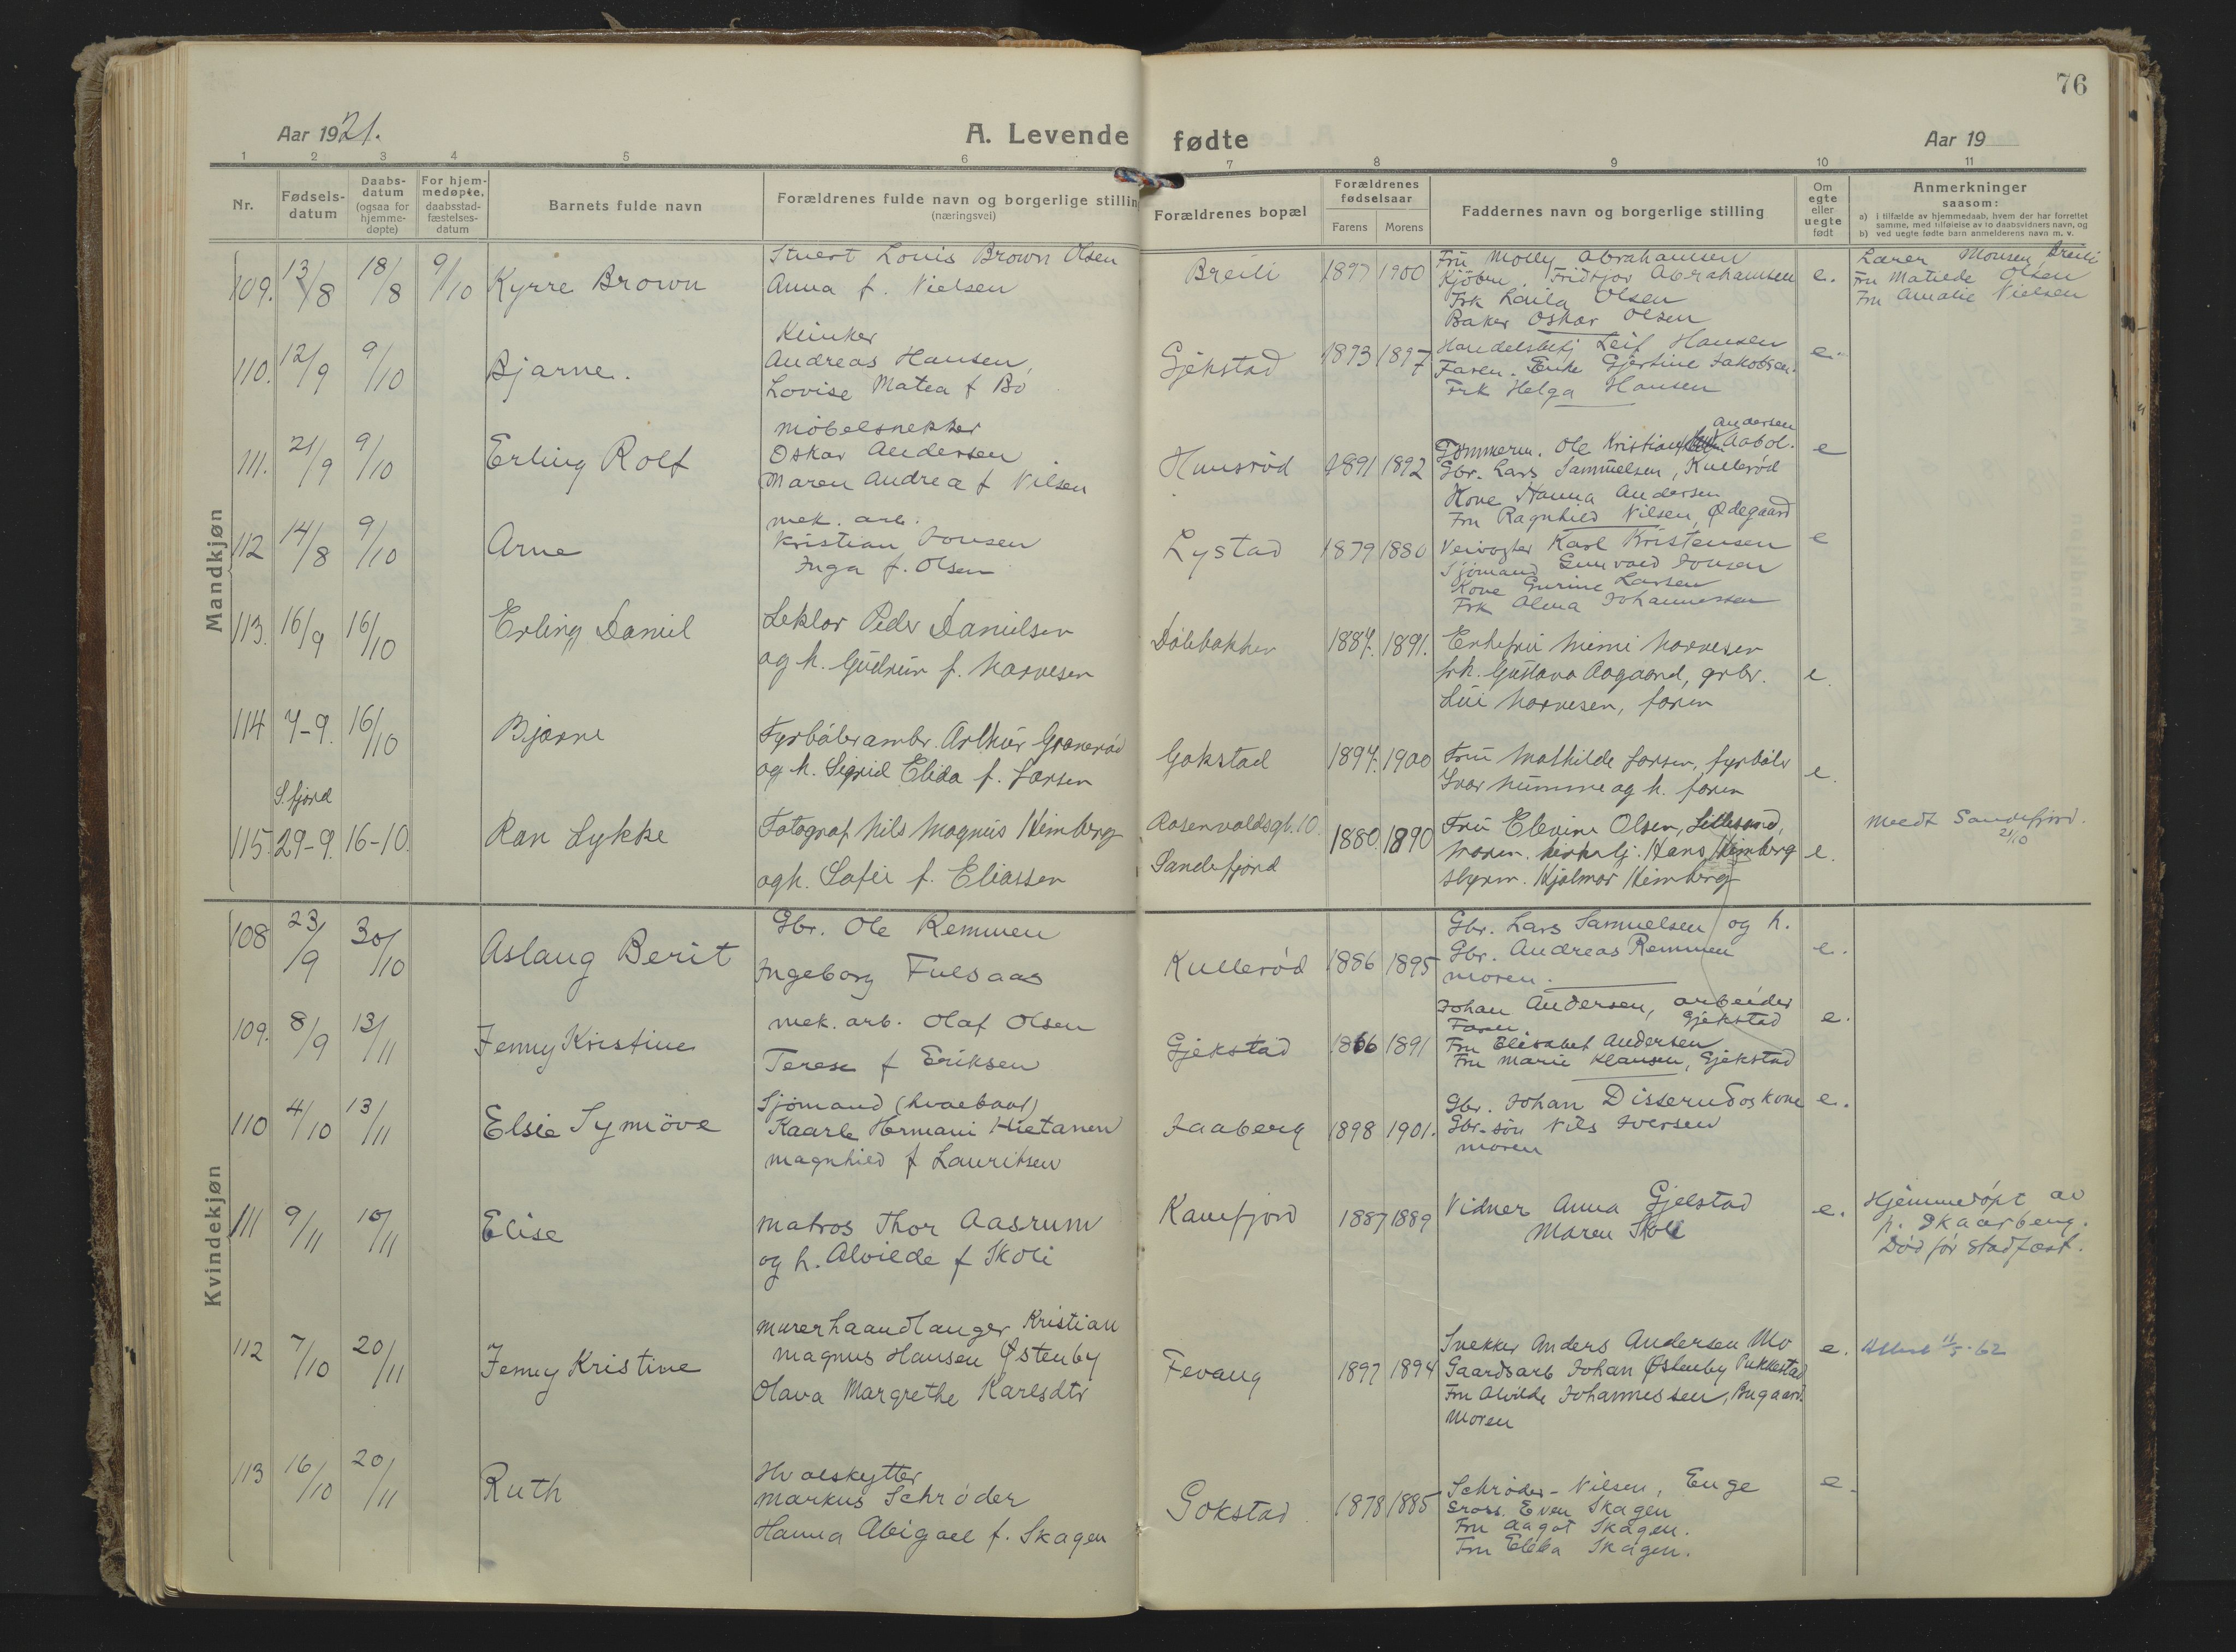 76
Aar 1921.
A. Levende fødte
Aar 19
1 2 3 4 5 6 7 8 9 10 11
Nr.
Fødsels-
datum
Daabs-
datum
(ogsaa for
hjemme-
døpte)
For hjem-
medøpte,
daabsstad-
fæstelses-
datum
Barnets fulde navn
Forældrenes fulde navn og borgerlige stilling
(næringsvei)
Forældrenes bopæl
Forældrenes
fødselsaar
Farens Morens
Faddernes navn og borgerlige stilling
Om
egte
eller
uegte
født
Anmerkninger
saasom:
a) i tilfælde av hjemmedaab, hvem der har forrettet
samme, med tilføielse av to daabsvidners navn, og
b) ved uegte fødte barn anmelderens navn m. v.
Mandkjøn
109. 13/8 18/8 9/10 Kyrre Brown
Stuert Louis Brown Olsen
Anna f. Nielsen
Breili 1897 1900
Fru Molly Abrahamsen
Kjöbm. Fridtjov Abrahamsen
Frk Laila Olsen
Baker Oskar Olsen
e.
Lærer Monsen, Breili
Fru Matilde Olsen
Fru Amalie Nielsen
110. 12/9 9/10 Bjarne.
Klinker
Andreas Hansen,
Lovise Matea f Bö
Gjekstad 1893 1897
Handelsbetj Leif Hansen
Faren. Enke Gjertine Jakobsen.
Frk Helga Hansen
e.
111. 21/9 9/10 Erling Rolf
Möbelsnekker
Oskar Andersen
Maren Andrea f Nilsen
Hunsröd 1891 1892
Andersen
Tömmerm. Ole Kristian Aabol.
Gbr. Lars Sammelsen, Kulleröd
Kone Hanna Andersen
Fru Ragnhild Nilsen, Ødegaard
e
112 14/8 9/10 Arne
mek. arb.
Kristian Jonsen
Inga f. Olsen
Lystad 1879 1880
Veivogter Karl Kristensen
Sjömand Gunvald Jonsen
Kone Gurine Larsen
Frk Alma Johannessen
e
113. 16/9 16/10 Erling Daniel
Lektor Peder Danielsen
og h. Gudrun f. Narvesen
Dölebakken 1887. 1891.
Enkefru Mimi Narvesen
frk. Gustava Aagaard, grbr.
Lüi Narvesen, faren
e.
114 7-9. 16/10 Bjarne
Fyrböterambr. Arthur Granerød
og h. Sigrid Elida f. Larsen
Gokstad 1897. 1900
Fru Mathilde Larsen, fyrböter
Ivar Numme og h. faren
e.
S.fjord
115. 29-9. 16-10. Ran Lykke
Fotograf Nils Magnus Heimberg
og h. Sofie f. Eliassen
Rosenvoldsgt. 10.
Sandefjord
1880. 1890
Fru Elevine Olsen, Lillesand,
moren. kirketj. Hans Heimberg
styrm. Hjalmar Heimberg
e.
Meedt Sandefjord.
21/10
Kvindekjøn
108 23/9 30/10 Aslaug Berit
Gbr. Ole Remmen
Ingeborg Fulsaas
Kulleröd 1886 1895
Gbr. Lars Samuelsen og h.
Gbr. Andreas Remmen
moren.
e.
109. 8/9 13/11 Jenny Kristine
mek. arb. Olaf Olsen
Terese f Eriksen
Gjekstad 1866 1891
Johan Andersen, arbeider
Faren Gjekstad
Fru Elisabet Andersen
Fru Marie Klausen, Gjekstad
e.
110 4/10 13/11 Elsie Synnöve
Sjömand (hvalbaat)
Kaarle Hermani Hietanen
Magnhild f Lauritsen
Jaaberg 1898 1901.
Gbr. Johan Disserud og kone
Gbr-sön Nils Iversen
moren
e.
111 9/11 10/11 Elise
Matros Thor Aasrum
og h. Alvilde f Skoli
Kamfjord 1887 1889
Vidner Anna Gjelstad
Maren Skoli
e.
Hjemmedöpt av
p. Skaarberg.
Död för stadfæst.
112 7/10 20/11 Jenny Kristine
Murerhaandlanger Kristian
Magnus Hansen Østenby
Olava Margrethe Karlsdtr
Fevang 1897 1894
Snekker Anders Andersen Mo
Gaardsarb Johan Østenby Pukkestad
Fru Alvilde Johannessen, Bugaard.
Moren
e.
Attest 11/5-62
113 16/10 20/11 Ruth
Hvalskytter
Markus Schröder
Hanna Abigael f. Skagen
Gokstad 1878 1885
Schröder-Nilsen, Enge
Gross. Even Skagen
Fru Aagot Skagen.
Fru Ebba Skagen.
e.